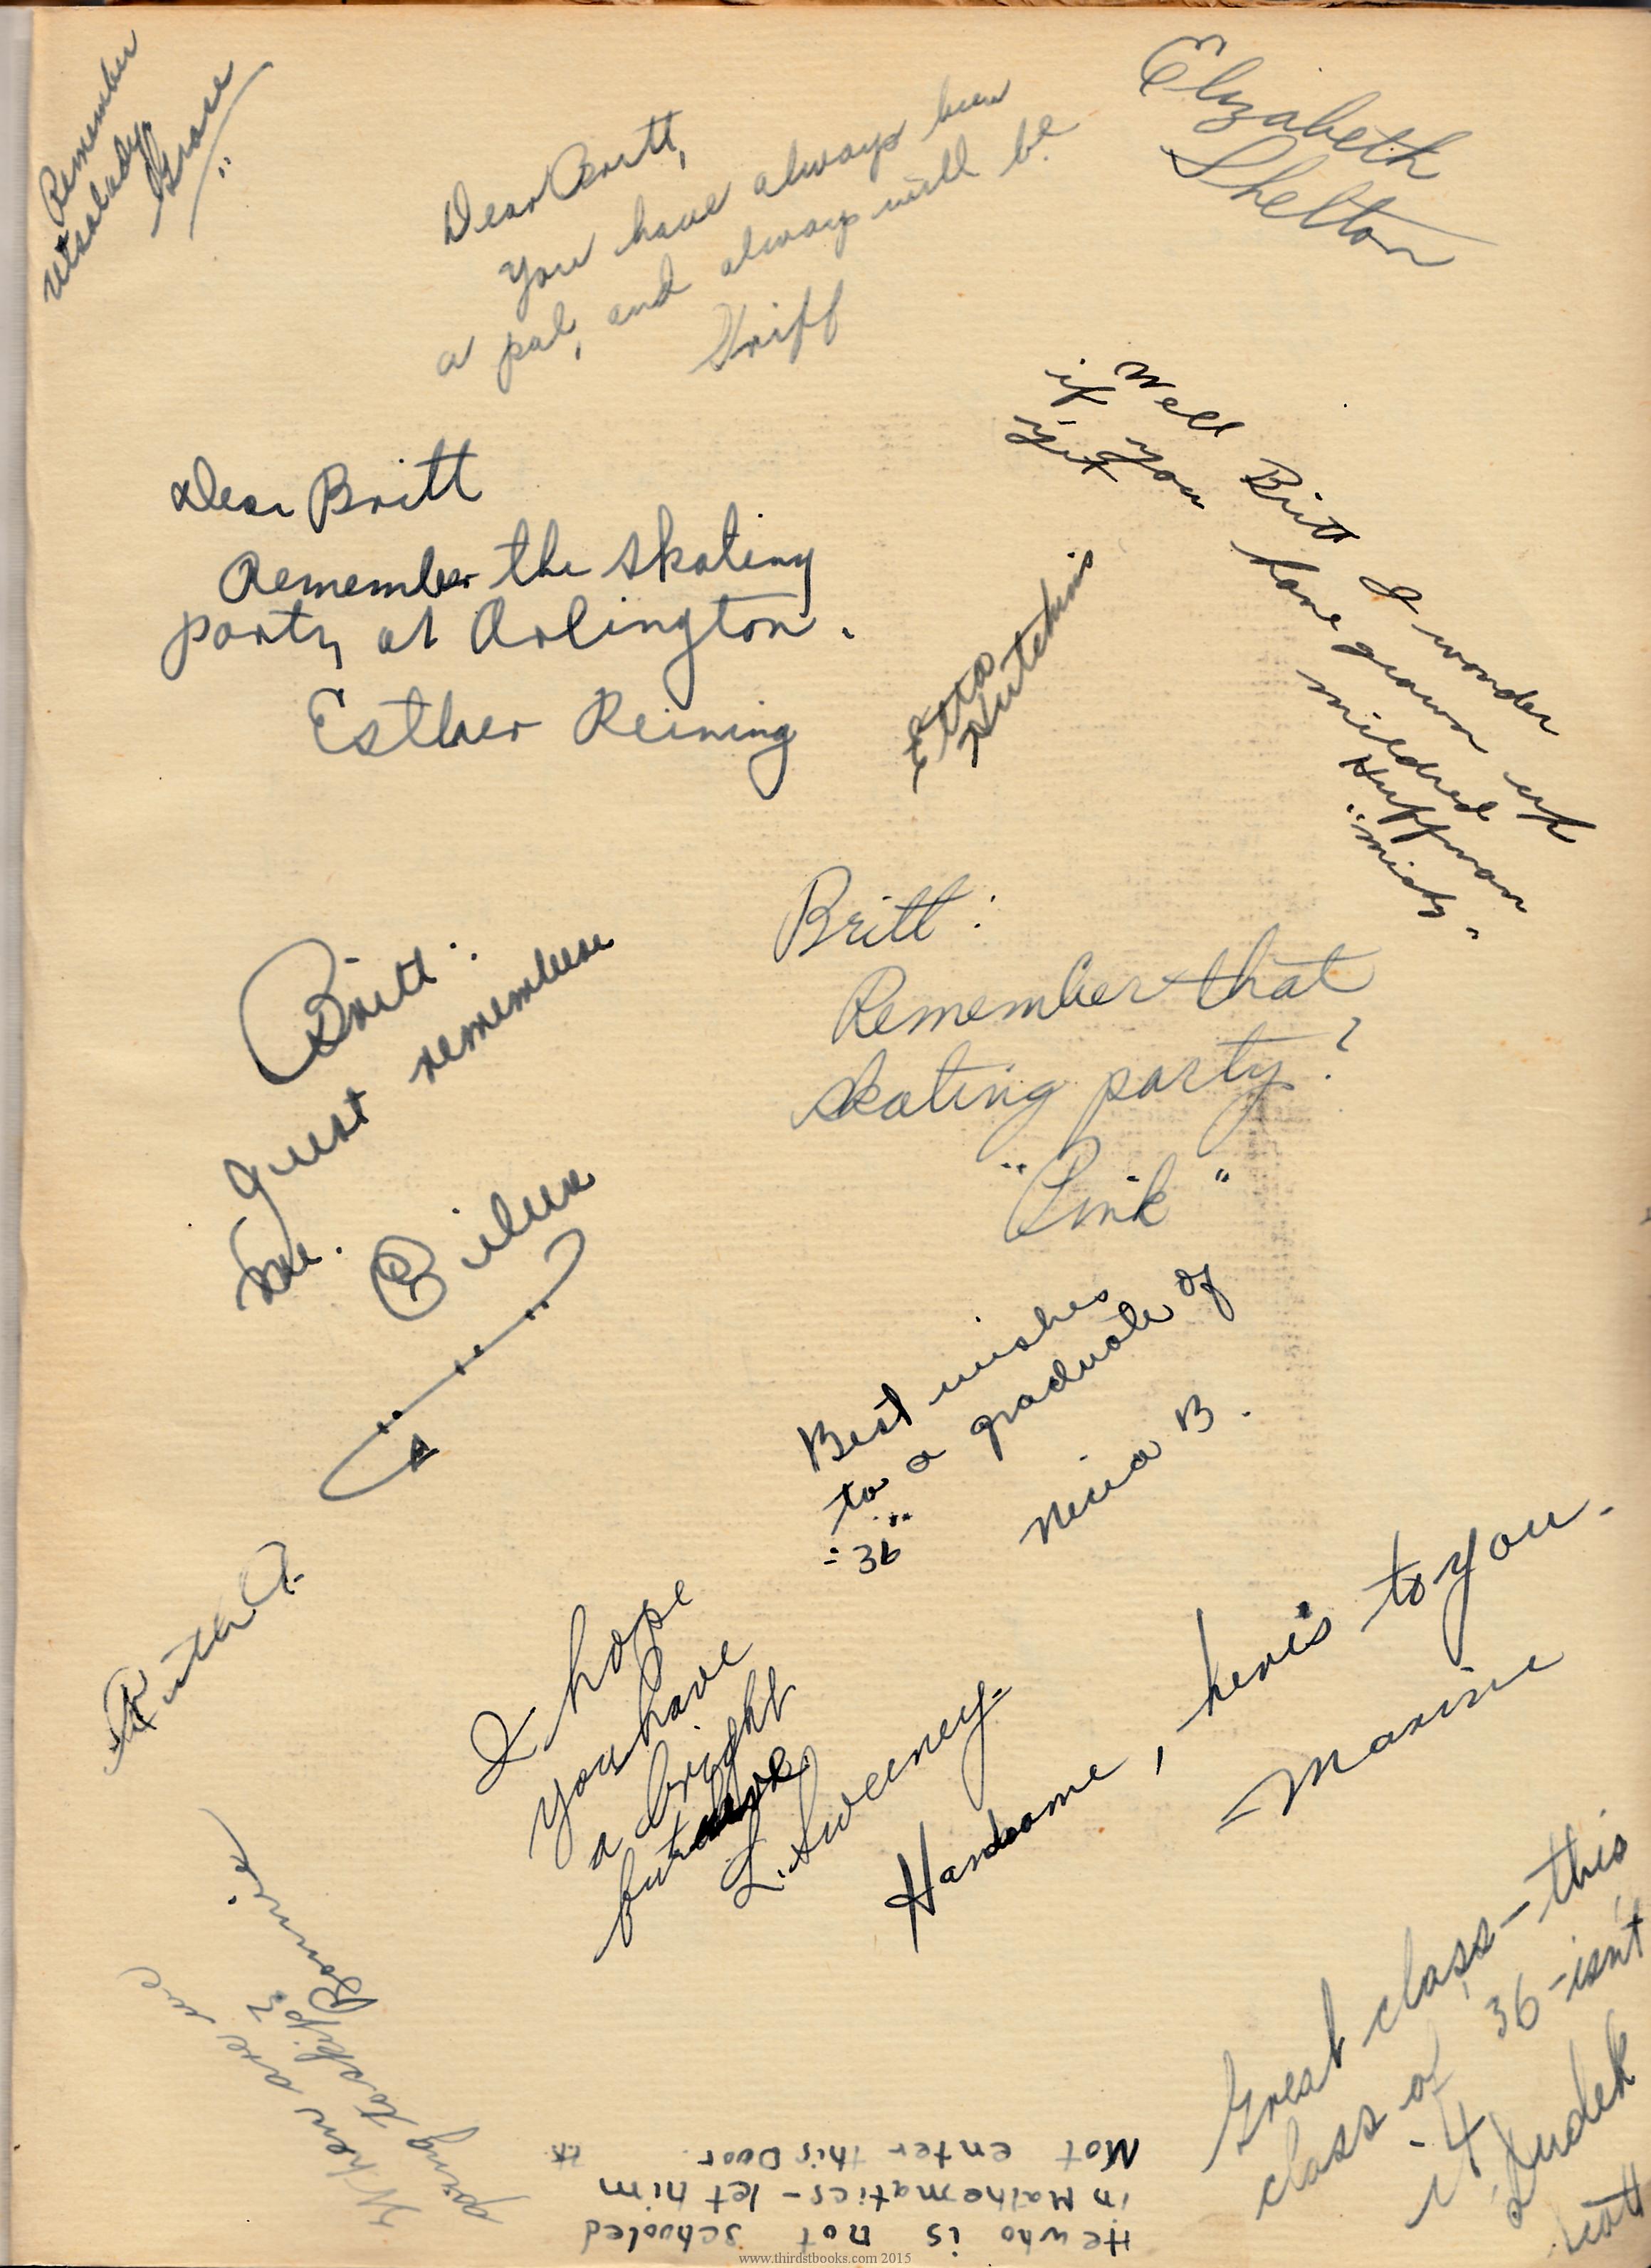 Remember
Utsalady
Grace
Dear Britt,
You have always been
a pal, and always will be
Griff
Elizabeth
Shelton
Well Britt I wonder
if you have grown up
yet
Mildred
Huffman
"Midy"
Dear Britt
Remember the skating
party at Arlington.
Esther Reining
Etta
Hutchins
Britt:
Just remember
me.
Eileen
Britt:
Remember that
skating party?
"Pink"
Best wishes
to a graduate of
"36"
Neva B.
Ruth A.
I hope
you have
a bright
future
L. Sweeney.
Handsome, here's to you.
Maxine
When are we
going to skip?
Bonnie
Great class - this
class of 36 - isn't
it
Dudek
He who is not schooled
in Mathematics - let him
Not enter this Door.
www.thirdstbooks.com 2015